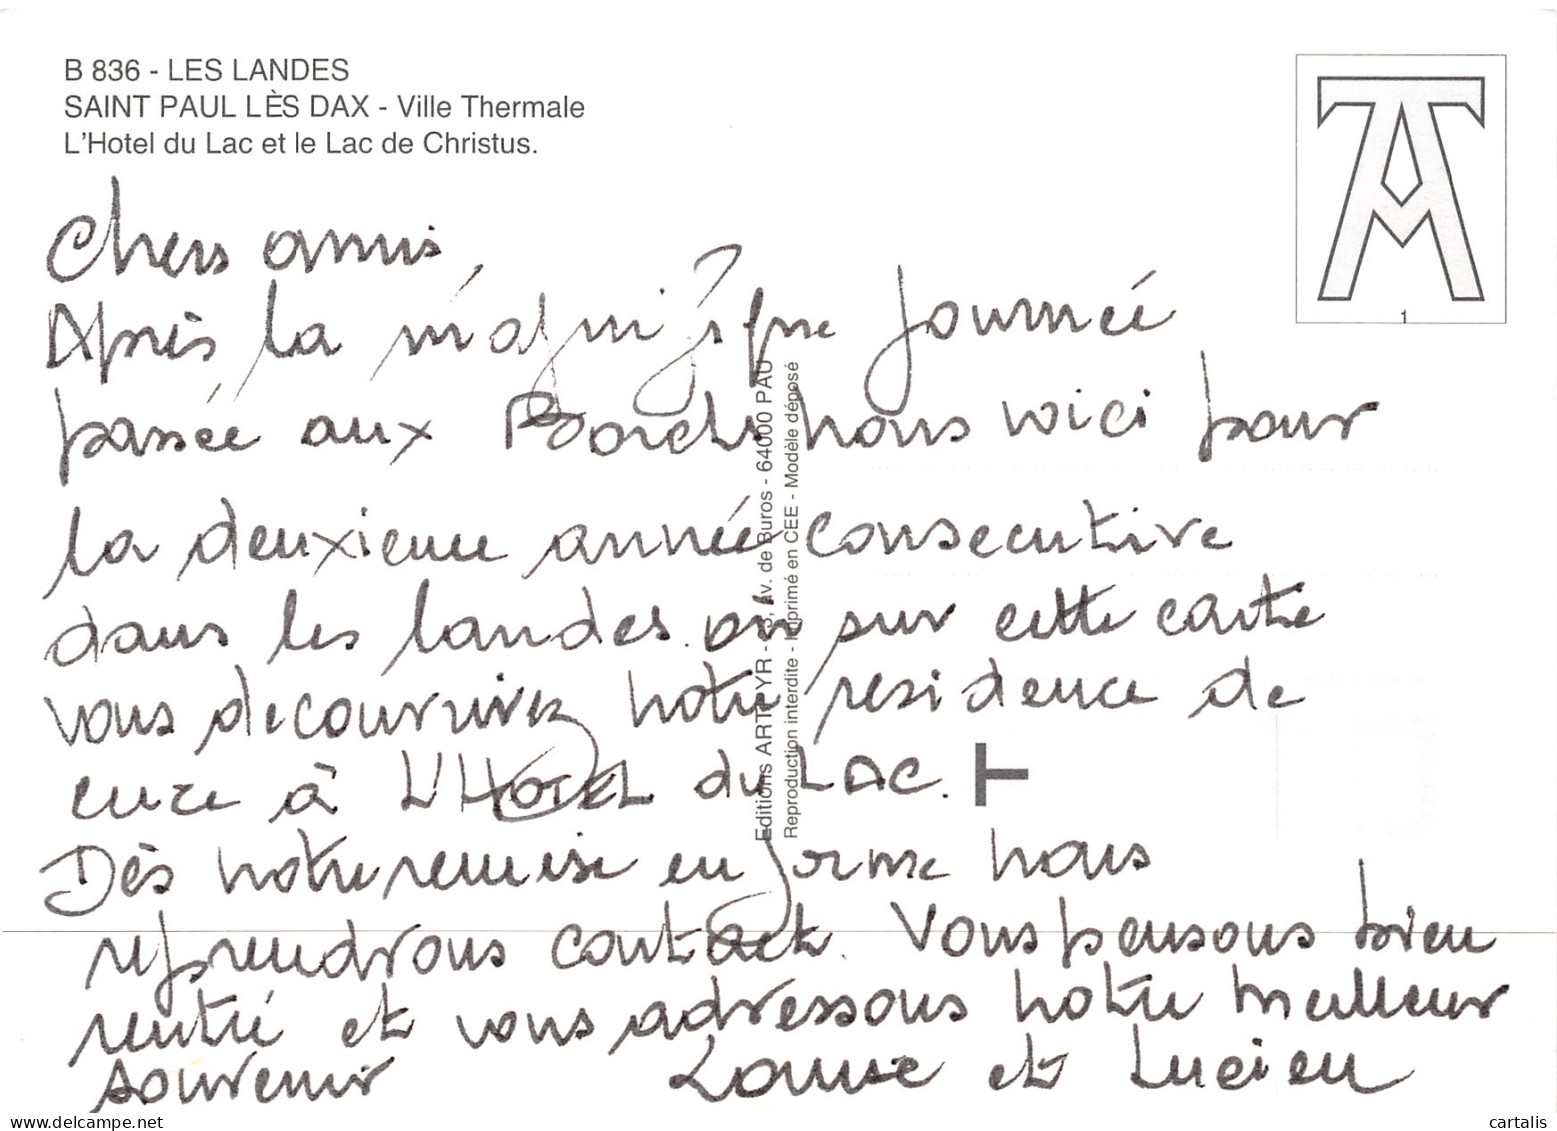 B 836 - LES LANDES
SAINT PAUL LÈS DAX - Ville Thermale
L'Hotel du Lac et le Lac de Christus.
1
Chers amis,
Après la magnifique journée
passée aux nous voici pour
la deuxieme année consecutive
dans les landes. où sur cette carte
vous decouvrirez notre residence de
cure à L'HOTEL du LAC.
Dès notre remise en forme nous
reprendrons contact. Vous pensons bien
rentré et vous adressons notre meilleur
souvenir Louise et Lucien
Editions ARTHYR - Av. de Buros - 64000 PAU
Reproduction interdite - Imprimé en CEE - Modèle déposé
delcampe.net
cartalis